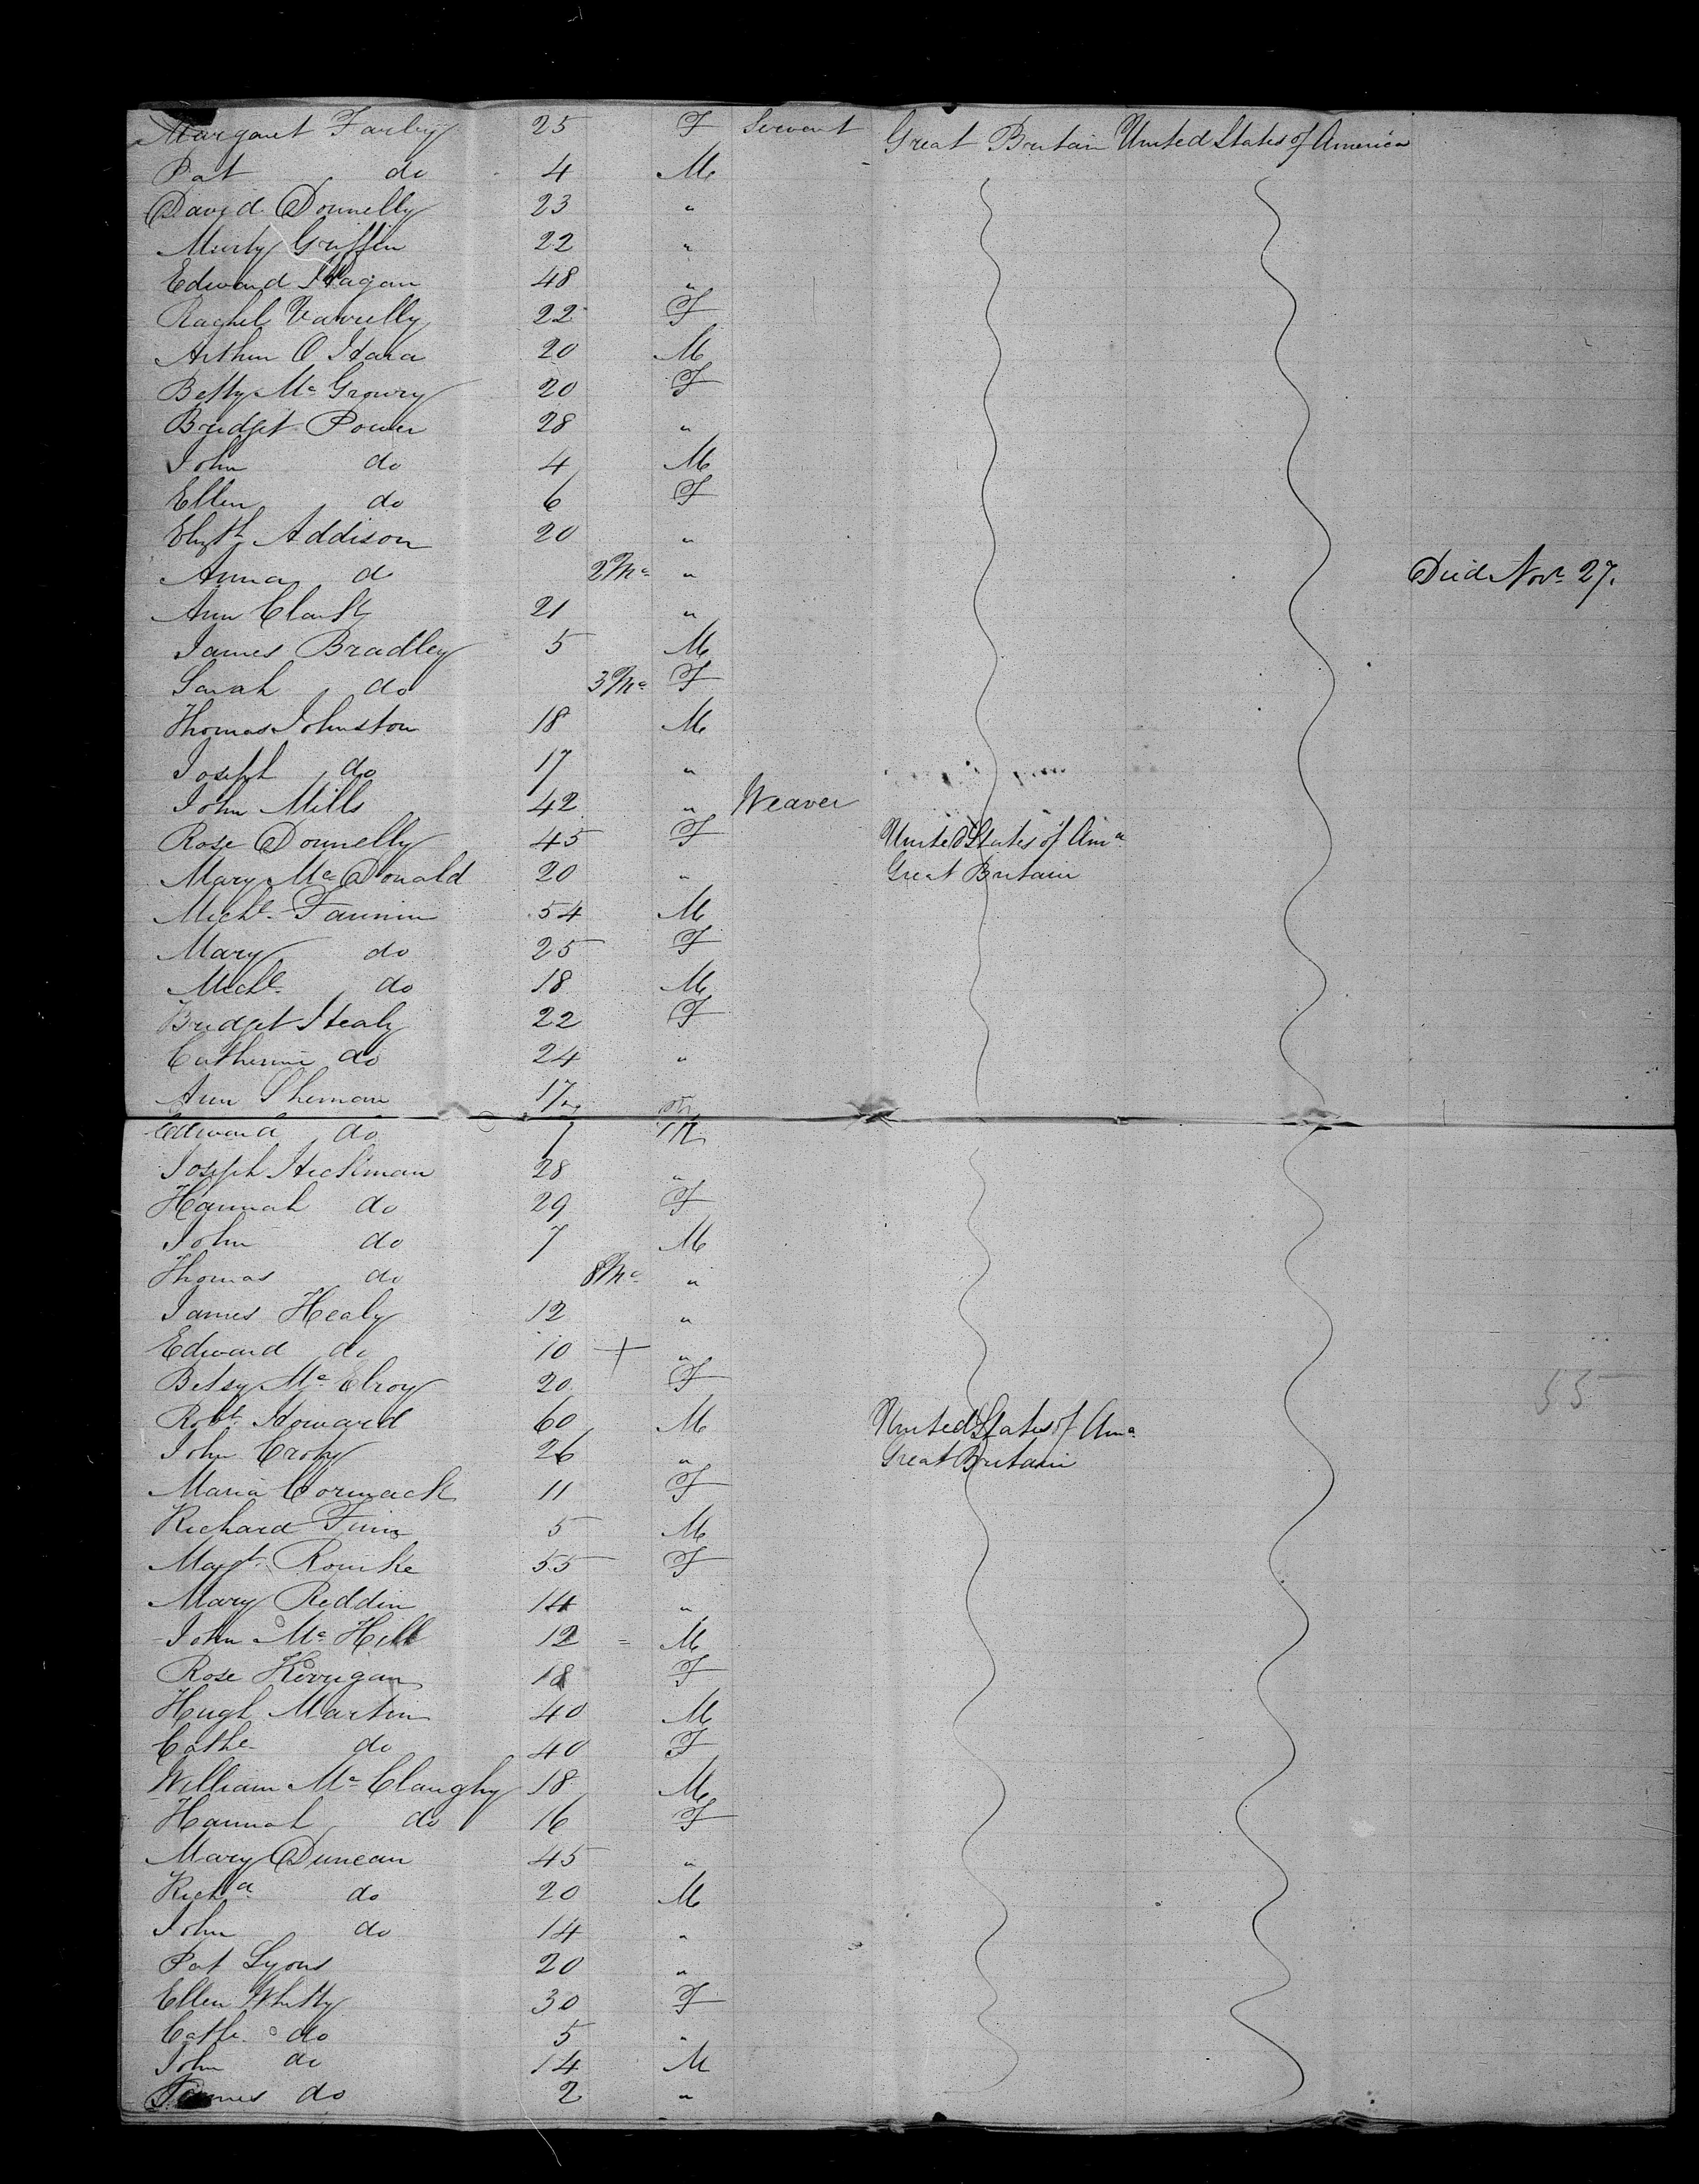 Margaret Farley 25 F Servant Great Britain United States of America
Pat do 4 M
David Donnelly 23 "
Murty Griffin 22 "
Edward Hagan 48 "
Rachel Varrelly 22 F
Arthur O Hara 20 M
Betty Mc Growry 20 F
Bridget Power 28 "
John do 4 M
Ellen do 6 F
Elizth Addison 20 "
Anna do 2 Mo "  Died Novr 27.
Ann Clark 21 "
James Bradley 5 M
Sarah do 3 Mo F
Thomas Johnston 18 M
Joseph do 17 "
John Mills 42 " Weaver
Rose Donnelly 45 F United States of Ama
Mary Mc Donald 20 " Great Britain
Michl Fannin 54 M
Mary do 25 F
Michl do 18 M
Bridget Healy 22 F
Catherine do 24 "
Ann Sheman 17 "
Edward do 7 M
Joseph Hickman 28 "
Hannah do 29 F
John do 7 M
Thomas do 8 Mo "
James Healy 12 "
Edward do 10 + "
Betsy Mc Elroy 20 F 55
Robt Howard 60 M United States of Ama
John Croby 26 " Great Britain
Maria Cormack 11 F
Richard Finn 5 M
Margt Rourke 55 F
Mary Reddin 14 "
John Mc Hill 12 = M
Rose Kerrigan 18 F
Hugh Martin 40 M
Cathe do 40 F
William Mc Claughy 18 M
Hannah do 16 F
Mary Duncan 45 "
Richd do 20 M
John do 14 "
Pat Lyons 20 "
Ellen Whitty 30 F
Cathe do 5 "
John do 14 M
James do 2 "